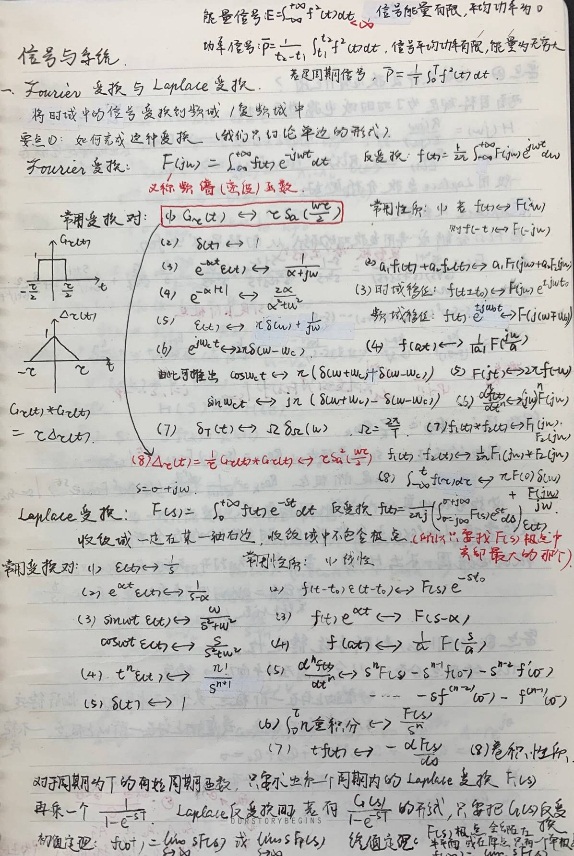 能量信号:E=∫_{-∞}^{+∞} f²(t)dt <∞ 信号能量有限,平均功率为0
功率信号:P̄=1/(t₂-t₁) ∫_{t₁}^{t₂} f²(t)dt, 信号平均功率有限,能量为无穷大
信号与系统. 若是周期信号, P̄=1/T ∫₀^T f²(t)dt
一、Fourier 变换 与 Laplace 变换.
将时域中的信号变换到频域/复频域中
要点①: 如何完成这种变换 (我们只讨论单边的形式).
Fourier 变换: F(jw) = ∫_{-∞}^{+∞} f(t) e^{-jwt} dt 反变换 f(t)=1/2π ∫_{-∞}^{+∞} F(jw) e^{jwt} dw
又称频谱(密度)函数.
常用变换对: (1) G_τ(t) ↔ τ Sa(wτ/2) 常用性质: (1) 若 f(t)↔F(jw)
G_τ(t) 1 -τ/2 τ/2 t
则 f(-t)↔F(-jw)
(2) δ(t) ↔ 1
(3) e^{-αt} ε(t) ↔ 1/(α+jw) (2) a₁f₁(t)+a₂f₂(t) ↔ a₁F₁(jw)+a₂F₂(jw)
(4) e^{-α|t|} ↔ 2α/(α²+w²) (3) 时域移位: f(t±t₀) ↔ F(jw) e^{±jwt₀}
△_τ(t) 1 -τ τ t
(5) ε(t) ↔ πδ(w) + 1/jw 频域移位: f(t) e^{±jw₀t} ↔ F(j(w∓w₀))
(6) e^{jw_ct} ↔ 2πδ(w-w_c) (4) f(at) ↔ 1/|a| F(jw/a)
由此可推出 cosw_ct ↔ π (δ(w+w_c)+δ(w-w_c)) (5) F(jt) ↔ 2πf(-w)
sinw_ct ↔ jπ (δ(w+w_c)-δ(w-w_c)) (5) dⁿf(t)/dtⁿ ↔ (jw)ⁿ F(jw)
G_τ(t)*G_τ(t)
= τ△_τ(t).
(7) δ_T(t) ↔ Ω δ_Ω(w) . Ω=2π/T (7) f₁(t)*f₂(t) ↔ F₁(jw)·F₂(jw)
(8) △_τ(t) = 1/τ G_τ(t)*G_τ(t) ↔ τSa²(wτ/2) f₁(t)·f₂(t) ↔ 1/2π F₁(jw)*F₂(jw)
s=σ+jw. (8) ∫_{-∞}^t f(τ)dτ ↔ πF(0)δ(w) + F(jw)/jw
Laplace 变换: F(s) = ∫₀^{+∞} f(t) e^{-st} dt 反变换 f(t)=1/2πj (∫_{σ-j∞}^{σ+j∞} F(s)e^{st}ds) ε(t)
收敛域一定在某一轴右边, 收敛域中不包含极点 (所以只要找F(s)极点中
实部最大的那个)
常用变换对: (1) ε(t) ↔ 1/s 常用性质: (1) 线性
(2) e^{αt} ε(t) ↔ 1/(s-α) (2) f(t-t₀) ε(t-t₀) ↔ F(s) e^{-st₀}
(3) sinwt ε(t) ↔ w/(s²+w²) (3) f(t) e^{αt} ↔ F(s-α)
coswt ε(t) ↔ s/(s²+w²) (4) f(at) ↔ 1/a F(s/a)
(4) tⁿ ε(t) ↔ n!/s^{n+1} (5) dⁿf(t)/dtⁿ ↔ sⁿF(s) - s^{n-1} f(0⁻) - s^{n-2} f'(0⁻)
(5) δ(t) ↔ 1 ······ - sf^{(n-2)}(0⁻) - f^{(n-1)}(0⁻)
(6) ∫₀^t n重积分 ↔ F(s)/sⁿ
(7) tf(t) ↔ - dF(s)/ds (8) 卷积性质.
对于周期为T的有始周期函数, 只要求出第一个周期内的 Laplace 变换 F₁(s)
再乘一个 1/(1-e^{-sT}). Laplace反变换时 若有 G(s)/(1-e^{-sT}) 的形式, 只要把G(s)反变换
DORSTORYBEGINS
初值定理: f(0⁺) = lim sF(s) 或 lim sF₀(s) 终值定理: